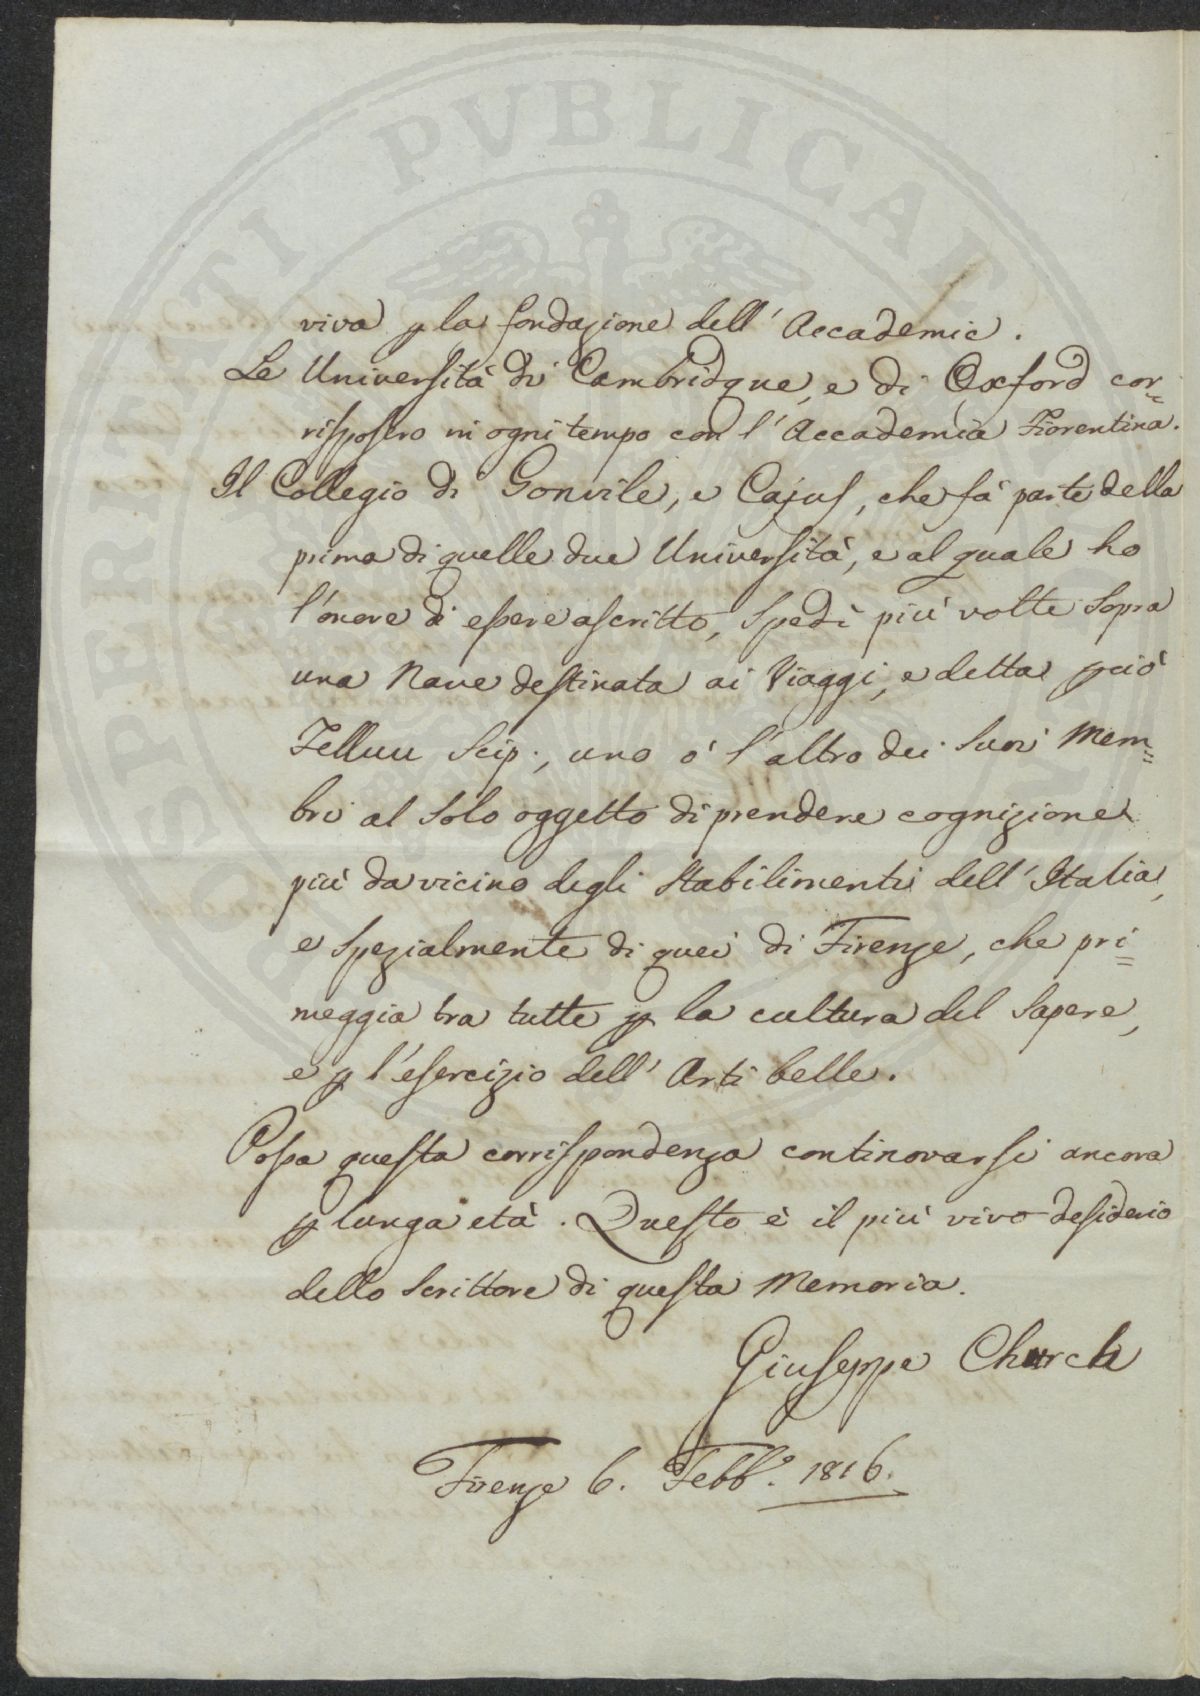 viva p la fondazione dell' Accademie.
Le Università di Cambridgue, e di Oxford cor=
risposero in ogni tempo con l'Accademia Fiorentina.
Il Collegio di Gonvile, e Cajus, che fà parte della
prima di quelle due Università, e al quale ho
l'onore di essere ascritto, spedì più volte sopra
una Nave destinata ai Viaggi, e detta pciò
Felluu Scip., uno ò l'altro dei suoi Mem=
bri al solo oggetto di prendere cognizione
più da vicino degli stabilimenti dell'Italia,
e spezialmente di quei di Firenze, che pri=
meggia tra tutte p la cultura del sapere,
e p l'esercizio dell'Arti belle.
Possa questa corrispondenza continovarsi ancora
p lunga età. Questo è il più vivo desiderio
dello scrittore di questa Memoria.
Giuseppe Church
Firenze 6. Febb.° 1816.
PVBLICAE